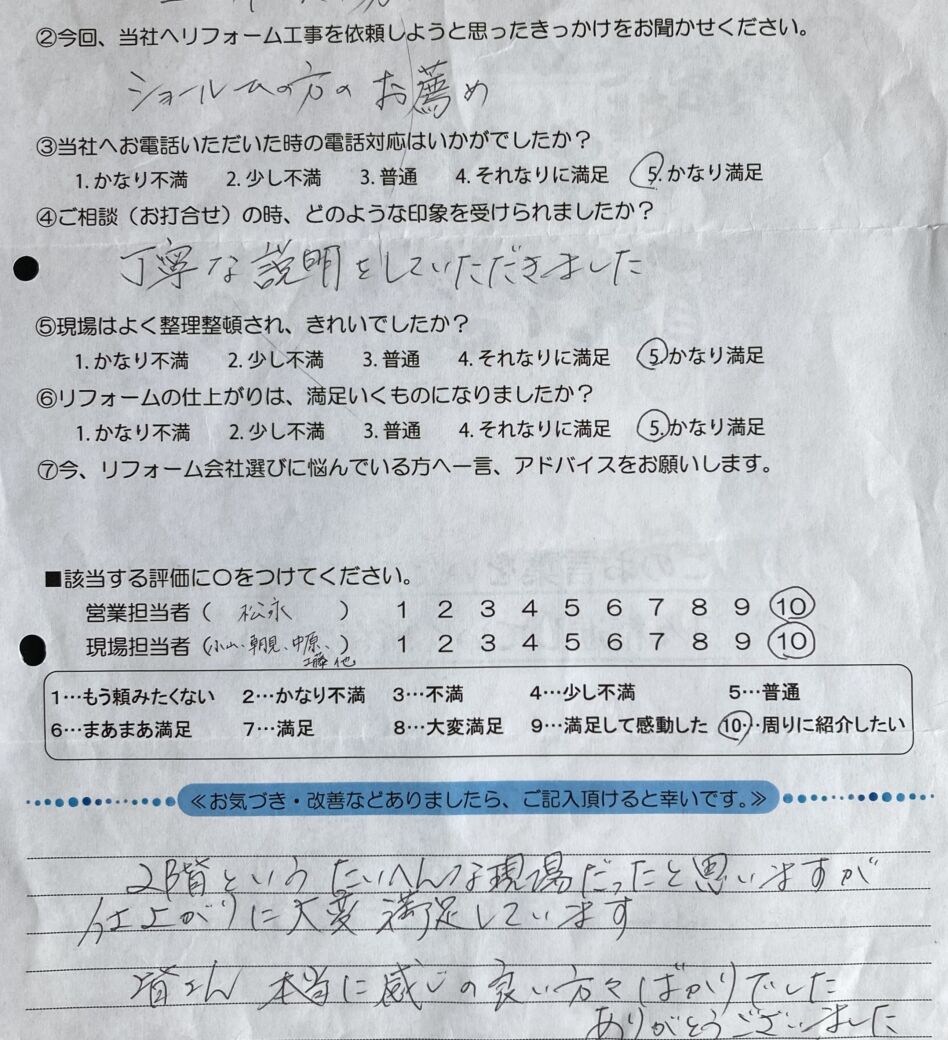 ②今回、当社へリフォーム工事を依頼しようと思ったきっかけをお聞かせください。
ショールームの方のお薦め
③当社へお電話いただいた時の電話対応はいかがでしたか？
1. かなり不満 2. 少し不満 3. 普通 4. それなりに満足 5. かなり満足
④ご相談（お打合せ）の時、どのような印象を受けられましたか？
丁寧な説明をしていただきました
⑤現場はよく整理整頓され、きれいでしたか？
1. かなり不満 2. 少し不満 3. 普通 4. それなりに満足 5. かなり満足
⑥リフォームの仕上がりは、満足いくものになりましたか？
1. かなり不満 2. 少し不満 3. 普通 4. それなりに満足 5. かなり満足
⑦今、リフォーム会社選びに悩んでいる方へ一言、アドバイスをお願いします。
■該当する評価に〇をつけてください。
営業担当者（ 松永 ） 1 2 3 4 5 6 7 8 9 10
現場担当者（小山、朝見、中原、 ） 1 2 3 4 5 6 7 8 9 10
他
1…もう頼みたくない 2…かなり不満 3…不満 4…少し不満 5…普通
6…まあまあ満足 7…満足 8…大変満足 9…満足して感動した 10…周りに紹介したい
≪お気づき・改善などありましたら、ご記入頂けると幸いです。≫
2階というたいへんな現場だったと思いますが
仕上がりに大変満足しています
皆さん 本当に感じの良い方々ばかりでした
ありがとうございました